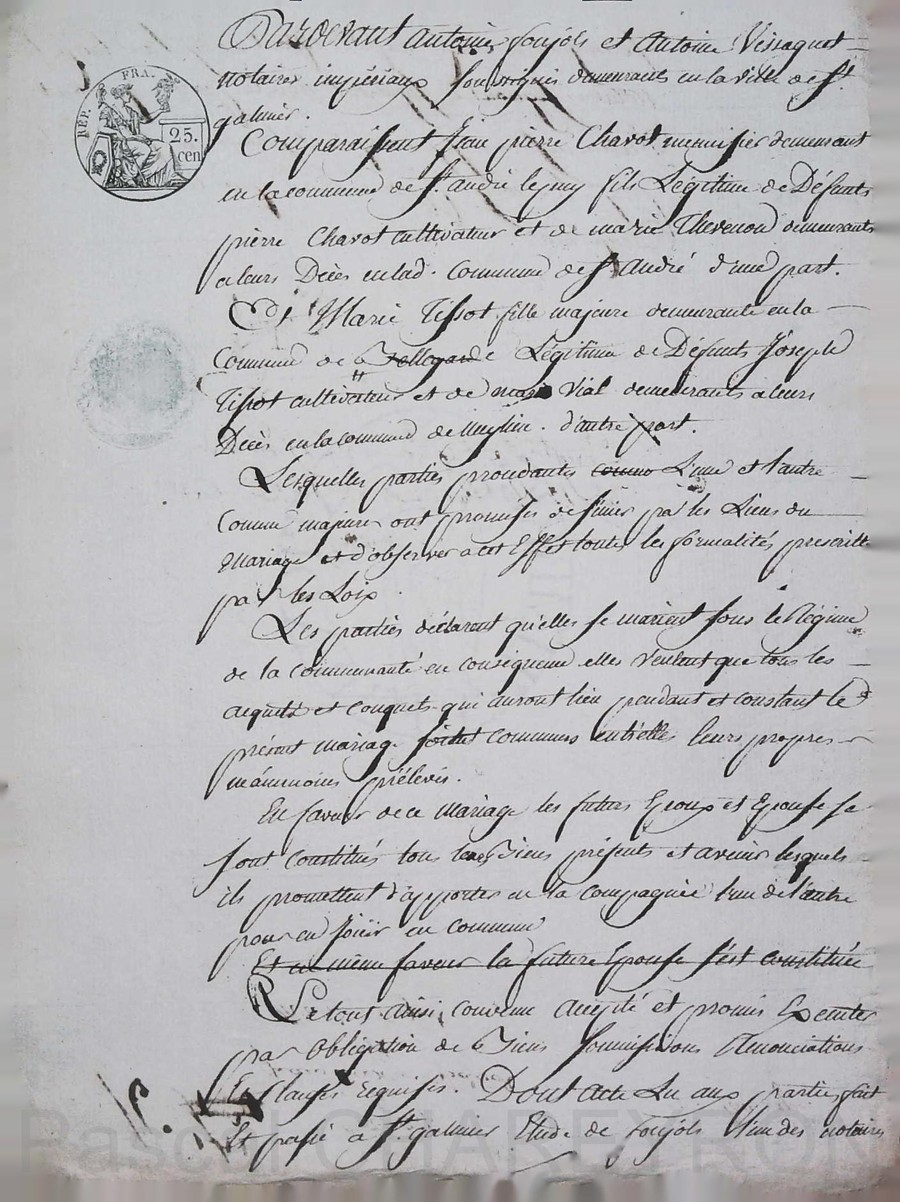 Pardevant antoine foujols et Antoine Vissaguet
notaires impériaux soussignés demeurants en la ville de St
galmier.
REP. FRA.
25.
cen
Comparaissent Jean pierre Chavot menuisier demeurant
en la commune de St. andré le puy fils Légitime de Défunts
pierre Chavot cultivateur et de marie Thevenon demeurants
a leurs Décès en lad. Commune de St André d'une part.
Et Marie Tissot fille majeure demeurante en la
Commune de Bellegarde Légitime de Défunts Joseph
Tissot cultivateur et de marie Vial demeurants a leurs
Décès en la commune de . d'autre part.
Lesquelles parties procedantes comme L'une et l'autre
Comme majeures ont promises de s'unir par les Liens du
Mariage et d'observer a cet Effet toutes les formalités prescrittes
par les Loix.
Les parties déclarent qu'elles se marient sous le Régime
de la Communauté en consequence elles veulent que tous les
acquets et conquets qui auront lieu pendant et constant le
présent mariage soient communs entr'elles leurs propres
prélevés.
En faveur de ce Mariage les futurs Epoux et Epouse se
sont Constitués tous leurs Biens présents et avenir lesquels
ils promettent d'apporter en la compagnie l'un de l'autre
pour en Joüir en commun
Et en même faveur la future Epouse s'est constituée
Le tout ainsi convenu accepté et promis Executer
par Obligation de Biens soumissions Renonciations
Et Clauses requises. Dont acte Lu aux parties fait
Et passé a St. galmier Etude de foujols l'un des notaires
Pascal CHAREYRON